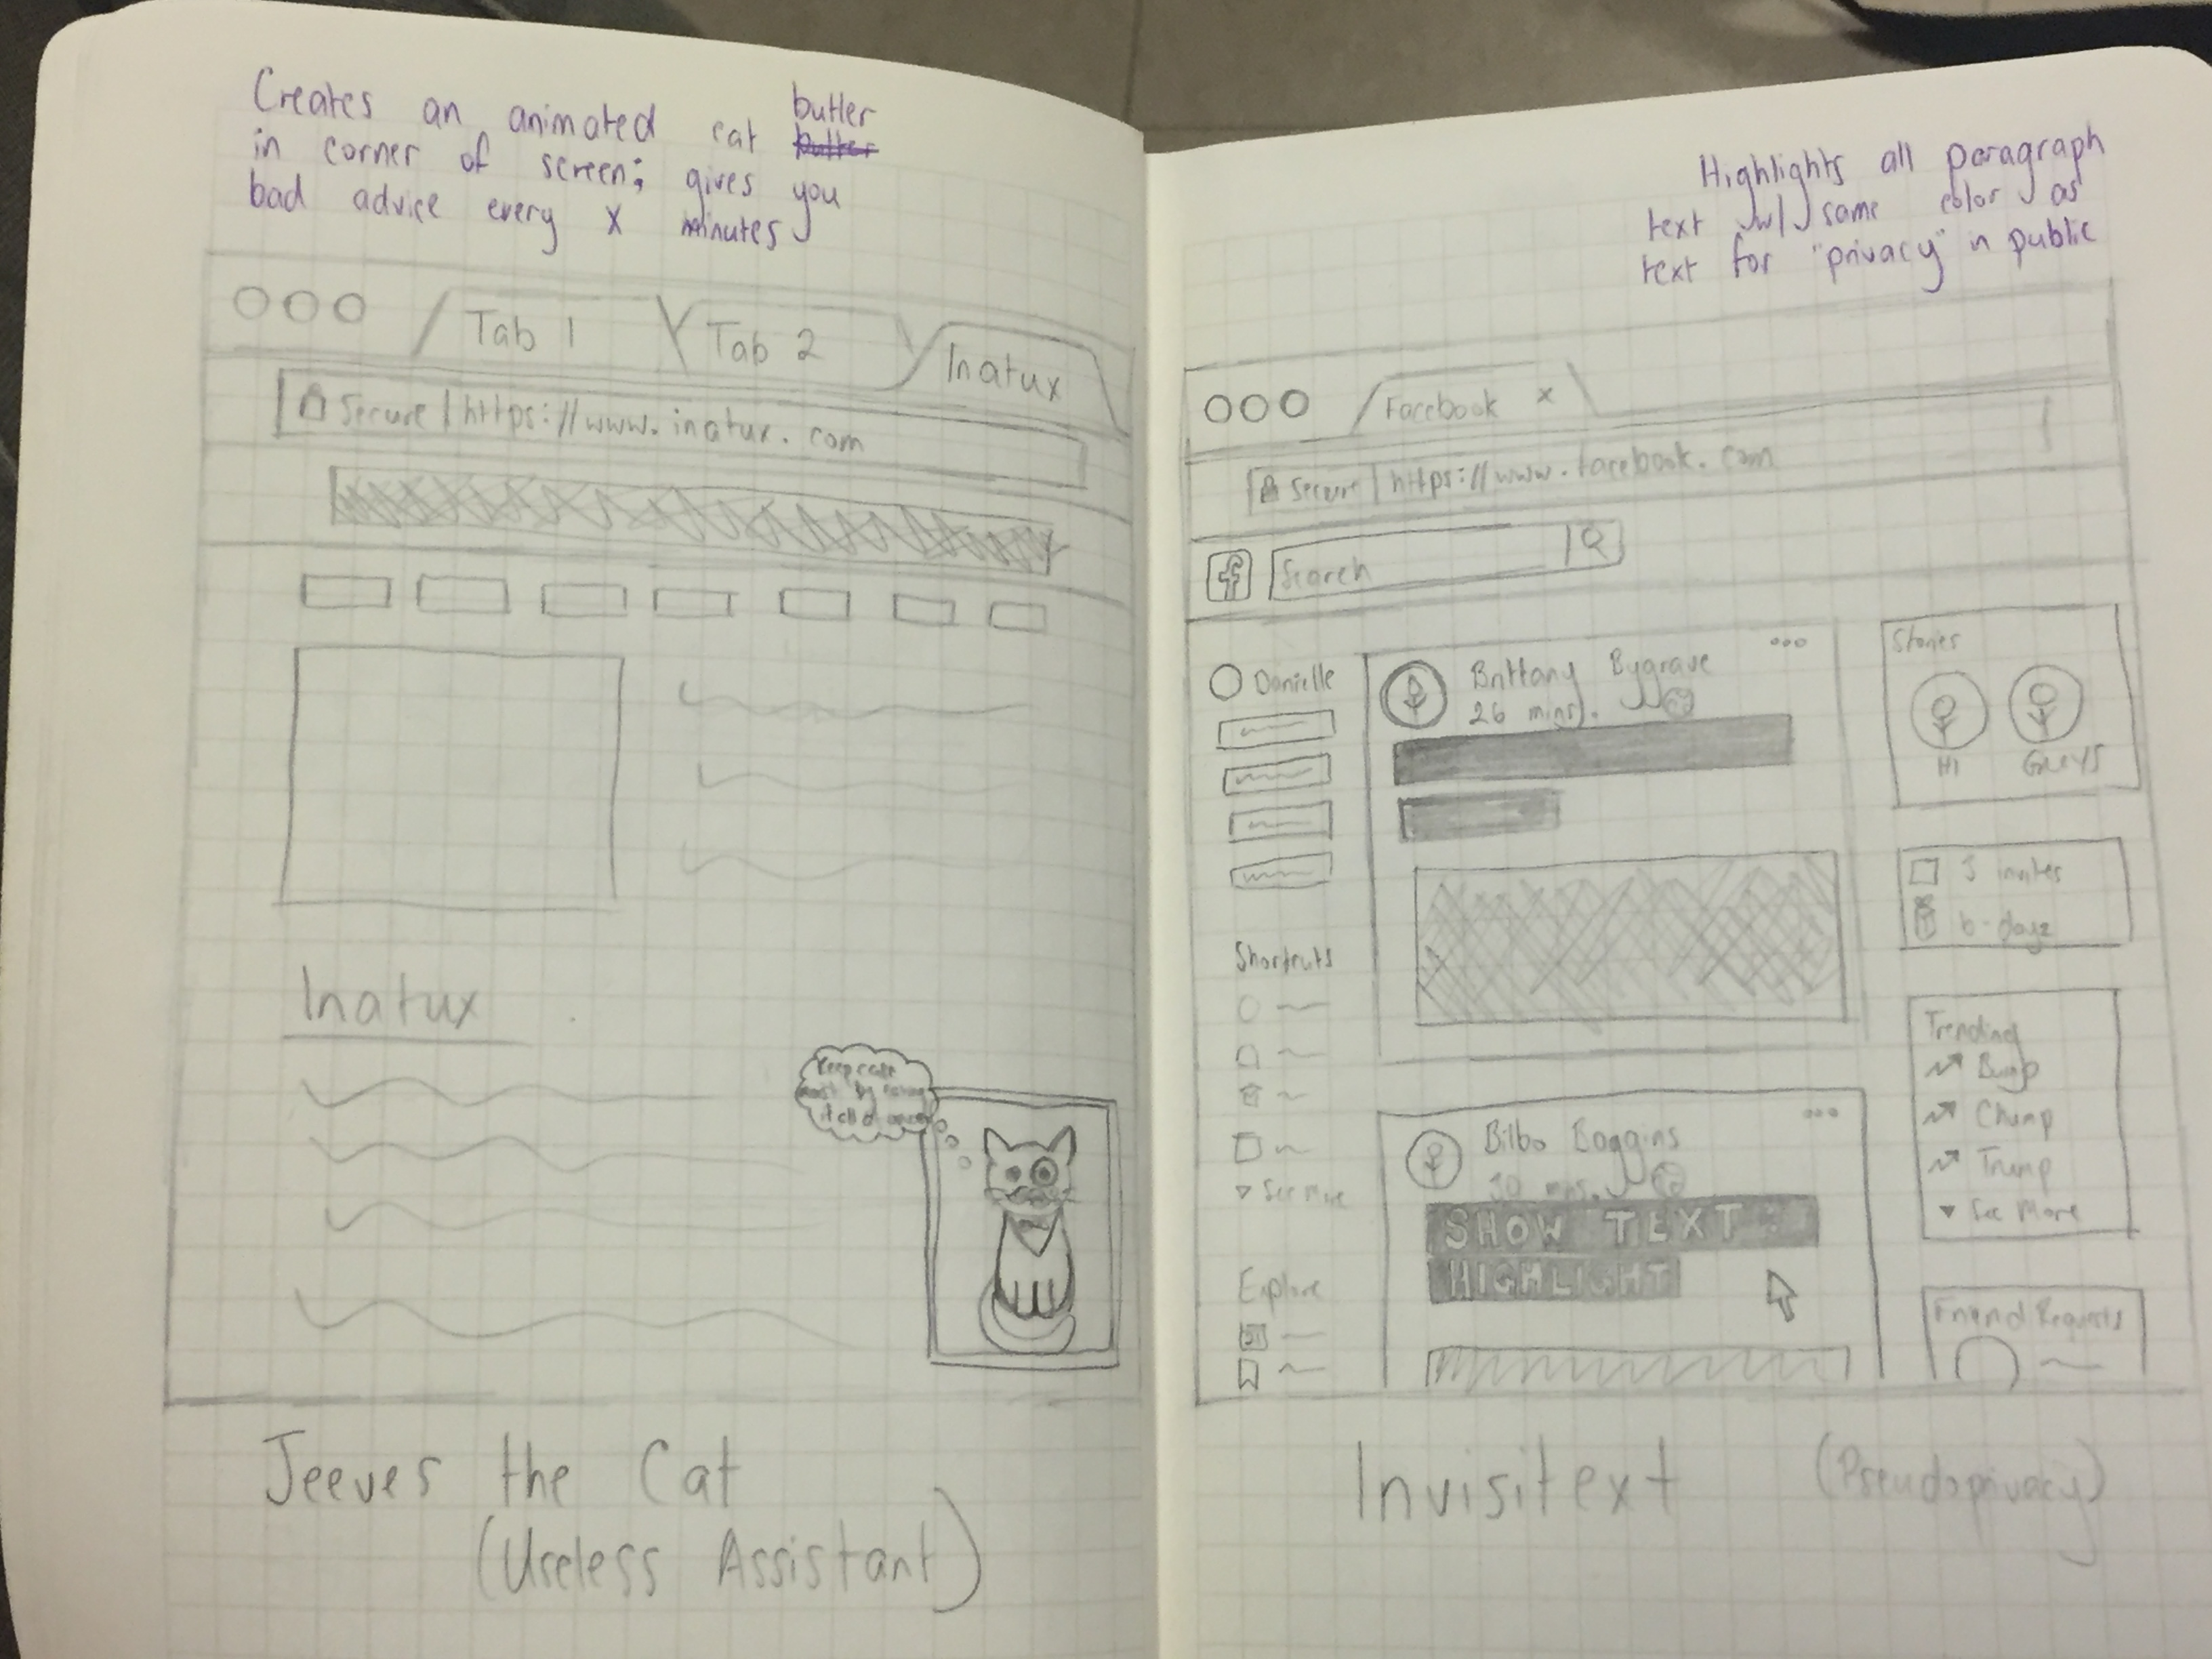 Creates an animated cat butler
butter
in corner of screen; gives you
bad advice every X minutes
Tab 1
Tab 2
Inatux
Secure | https://www.inatux.com
Inatux
Keep cake
moist by eating
it all at once
Jeeves the Cat
(Useless Assistant)
Highlights all paragraph
text w/ same color as
text for "privacy" in public
Facebook x
Secure | https://www.facebook.com
f
Search
Danielle
Shortcuts
See More
Explore
Brittany Bygrave
26 mins.
Bilbo Baggins
30 mins.
SHOW TEXT
HIGHLIGHT
Stories
HI
GUYS
3 invites
6 b-dayz
Trending
Chump
Trump
See More
Friend Requests
Invisitext
(Pseudoprivacy)